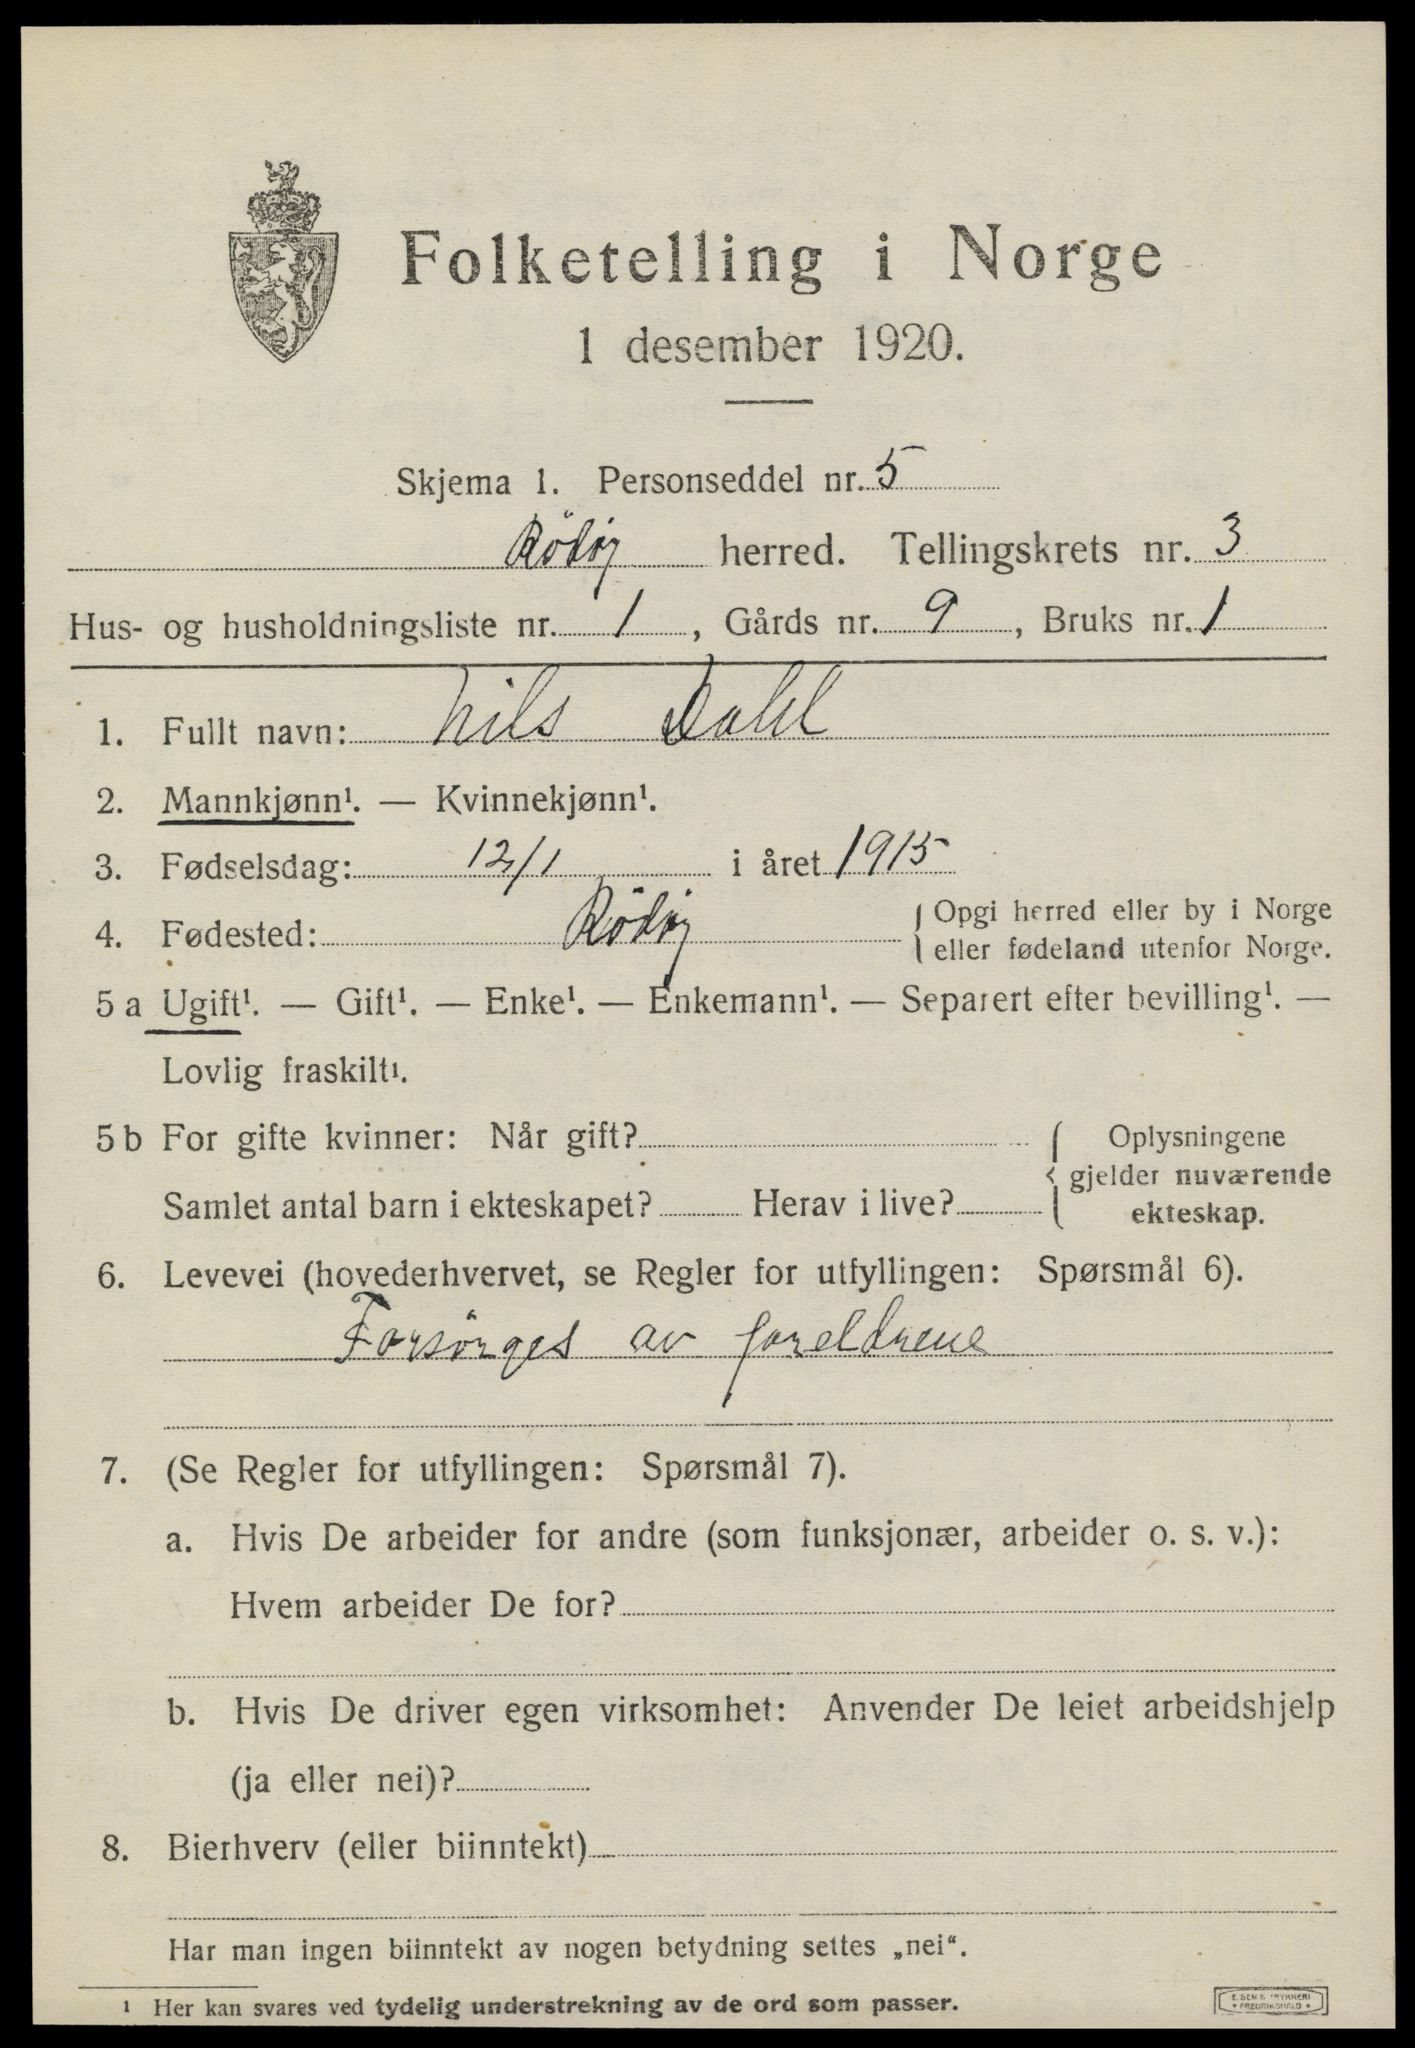 Folketelling i Norge
1 desember 1920.
Skjema 1. Personseddel nr. 5
Rödöy herred. Tellingskrets nr. 3
Hus- og husholdningsliste nr. 1, Gårds nr. 9, Bruks nr. 1
1. Fullt navn: Nils Dahl
2. Mannkjønn¹. — Kvinnekjønn¹.
3. Fødselsdag: 12/1 i året 1915
4. Fødested: Rödöy { Opgi herred eller by i Norge
eller fødeland utenfor Norge.
5 a Ugift¹. — Gift¹. — Enke¹. — Enkemann¹. — Separert efter bevilling¹. —
Lovlig fraskilt¹.
5 b For gifte kvinner: Når gift? { Oplysningene
gjelder nuværende
Samlet antal barn i ekteskapet? Herav i live? ekteskap.
6. Levevei (hovederhvervet, se Regler for utfyllingen: Spørsmål 6).
Forsörges av foreldrene
7. (Se Regler for utfyllingen: Spørsmål 7).
a. Hvis De arbeider for andre (som funksjonær, arbeider o. s. v.):
Hvem arbeider De for?
b. Hvis De driver egen virksomhet: Anvender De leiet arbeidshjelp
(ja eller nei)?
8. Bierhverv (eller biinntekt)
Har man ingen biinntekt av nogen betydning settes „nei“.
¹ Her kan svares ved tydelig understrekning av de ord som passer.
E. SEM'S TRYKKERI
* FREDRIKSHALD *